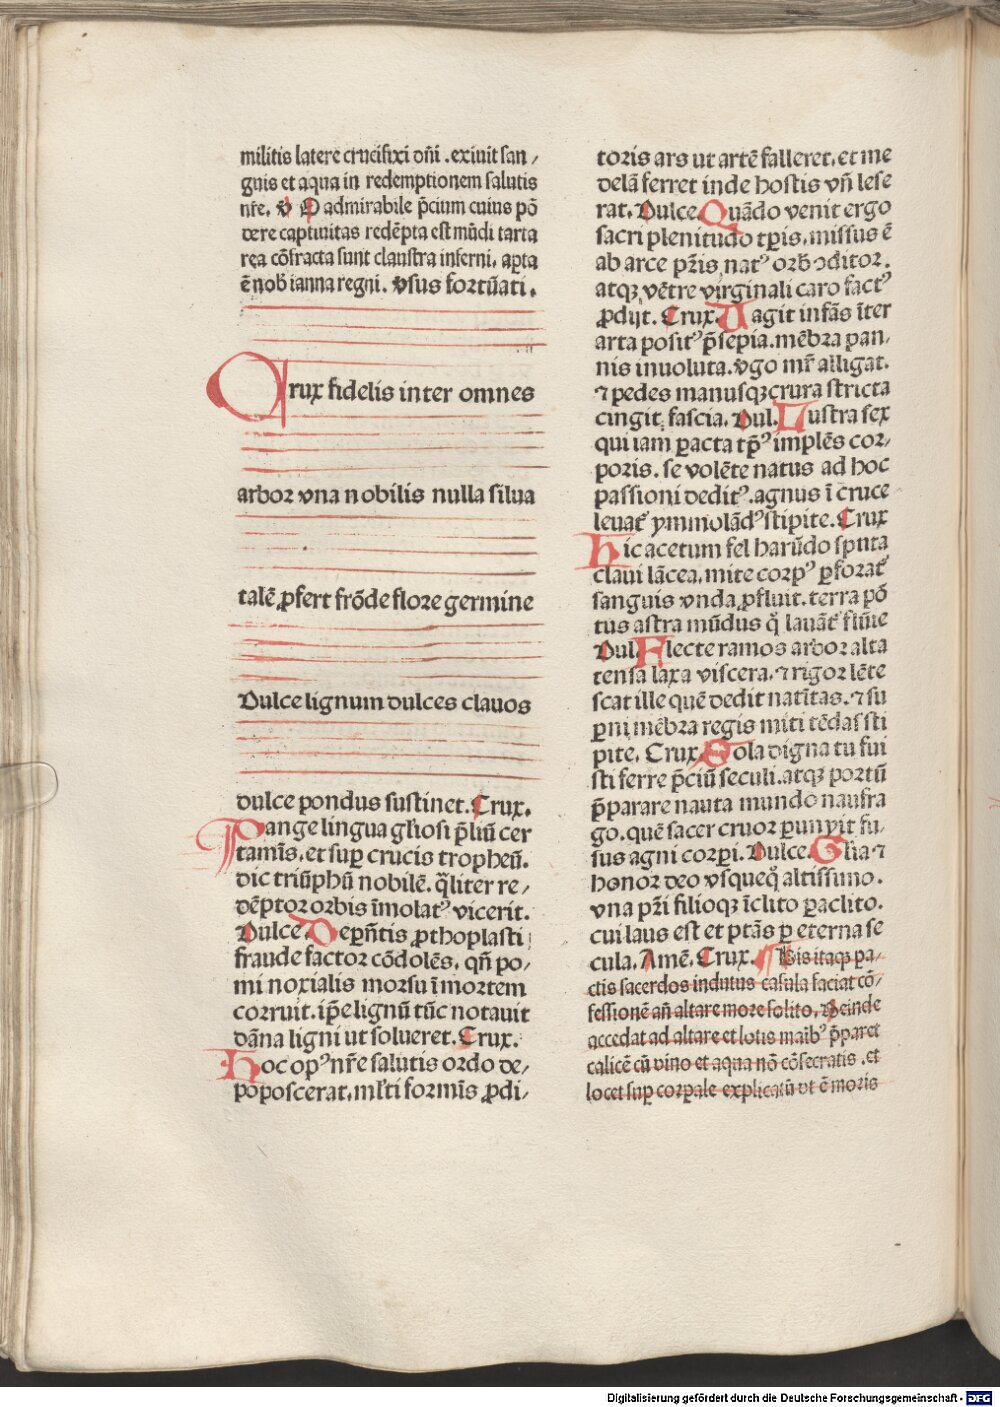 militis latere crucifixi dñi . exiuit san ⸗
guis et aqua in redemptionem salutis
nr̄e. ℣ O admirabile p̄cium cuius põ
dere captiuitas redẽpta est mũdi tarta
rea cõfracta sunt claustra inferni. aꝑta
ẽ nob ianna regni. Vsus fortũati.
Crux fidelis inter omnes
arbor vna nobilis nulla silua
talẽ ꝓfert frõde flore germine
Dulce lignum dulces clauos
dulce pondus sustinet. Crux.
Pange lingua gl̄iosi p̄liũ cer
tamĩs. et suꝑ crucis tropheũ.
dic triũphũ nobilẽ. q̄liter re⸗
dẽptor orbis ĩmolatꝰ vicerit.
Dulce. De parẽtis ꝓthoplasti
fraude factor cõdolẽs. qñ po⸗
mi noxialis morsu ĩ mortem
corruit. ip̄e lignũ tũc notauit
dãna ligni ut solueret. Crux.
Hoc opꝰ nr̄e salutis ordo de⸗
poposcerat. ml̄ti formĩs ꝓdi⸗
toris ars ut artẽ falleret. et me
delã ferret inde hostis vñ lese
rat. Dulce. Quãdo venit ergo
sacri plenitudo tꝑis. missus ẽ
ab arce pr̄is natꝰ orb̄ ditor.
atqꝫ vẽtre virginali caro factꝰ
ꝓdijt. Crux. Uagit infãs ĩter
arta positꝰ p̄sepia. mẽbra pan⸗
nis inuoluta. v̄go mr̄ alligat.
⁊ pedes manusqꝫ crura stricta
cingit fascia. Dul. Lustra sex
qui iam ꝑacta tp̄ꝰ implẽs cor⸗
poris. se volẽte natus ad hoc
passioni deditꝰ. agnus ĩ cruce
leuat̄ ymmolãdꝰ stipite. Crux
Hic acetum fel harũdo sputa
claui lãcea. mite corpꝰ ꝑforat̄
sanguis vnda ꝓfluit. terra põ
tus astra mũdus q̊ lauãt̄ flũie
Dul. Flecte ramos arbor alta
tensa laxa viscera. ⁊ rigor lẽte
scat ille quẽ dedit natĩtas. ⁊ su
ꝑni mẽbra regis miti tẽdas sti
pite. Crux. Sola digna tu fui
sti ferre p̄ciũ seculi. atqꝫ portũ
p̄parare nauta mundo naufra
go. quẽ sacer cruor ꝑunxit fu⸗
sus agni corꝑi. Dulce. Gl̄ia ⁊
honor deo vsquequo̊ altissimo.
vna pr̄i filioqꝫ ĩclito ꝑaclito.
cui laus est et ptãs ꝑ eterna se
cula. Amẽ. Crux. ¶ His itaqꝫ pa⸗
ctis sacerdos indutus casula faciat cõ⸗
fessionẽ añ altare more solito. Deinde
accedat ad altare et lotis maĩbꝰ p̄paret
calicẽ cũ vino et aqua nõ cõsecratis . et
locet suꝑ corꝑale explicatũ vt ẽ moris
Digitalisierung gefördert durch die Deutsche Forschungsgemeinschaft - DFG